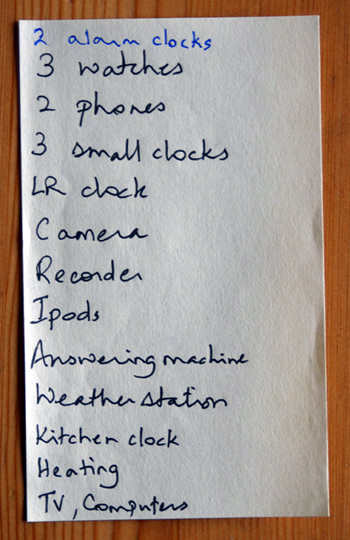 2 alarm clocks
3 watches
2 phones
3 small clocks
LR clock
Camera
Recorder
Ipods
Answering machine
Weather station
Kitchen clock
Heating
TV, Computers